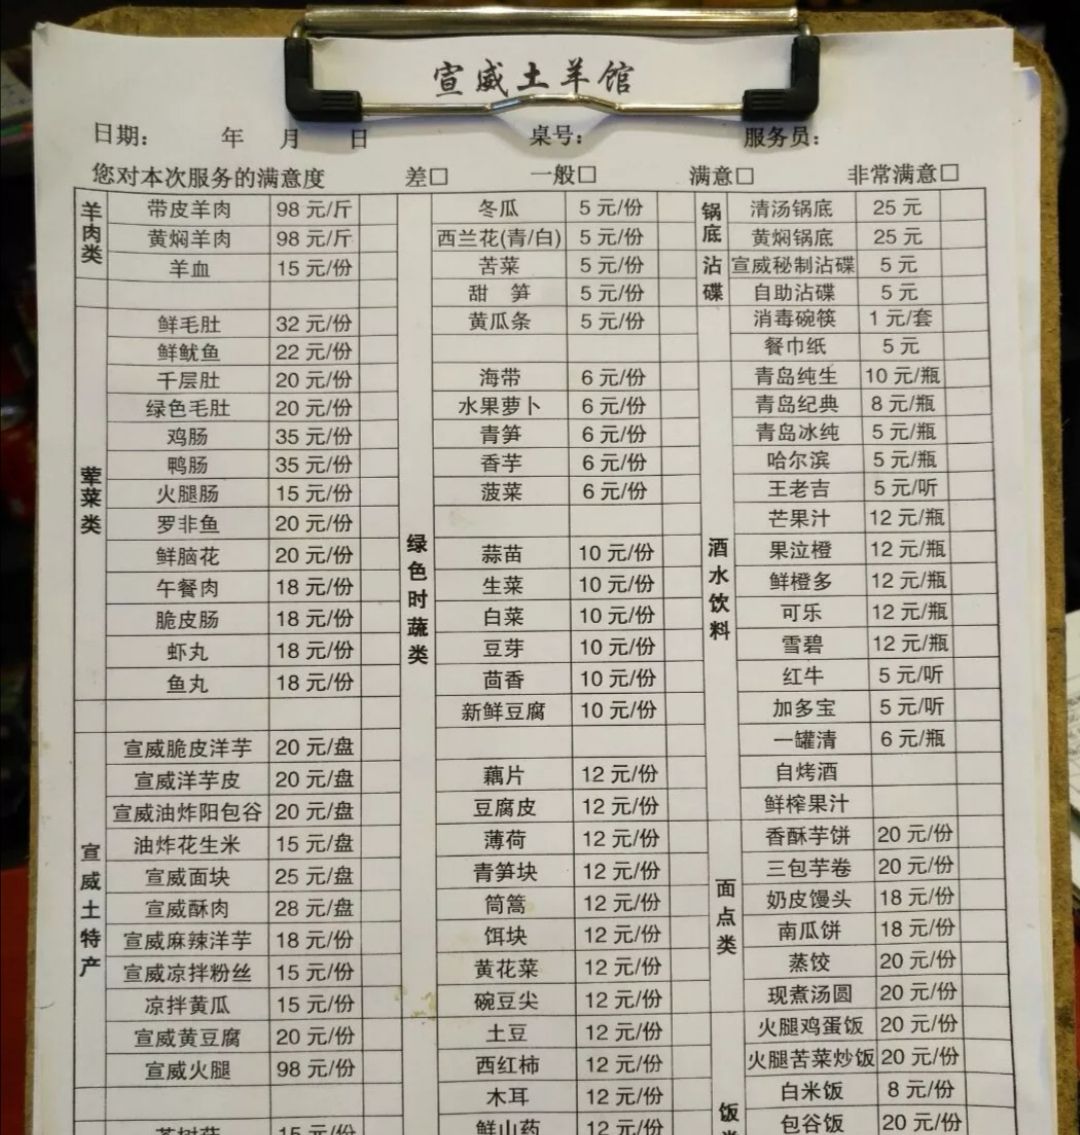 宣威土羊馆
日期： 年 月 日 桌号： 服务员：
您对本次服务的满意度 差□ 一般□ 满意□ 非常满意□
羊肉类
带皮羊肉 98 元/斤
黄焖羊肉 98 元/斤
羊血 15 元/份
荤菜类
鲜毛肚 32 元/份
鲜鱿鱼 22 元/份
千层肚 20 元/份
绿色毛肚 20 元/份
鸡肠 35 元/份
鸭肠 35 元/份
火腿肠 15 元/份
罗非鱼 20 元/份
鲜脑花 20 元/份
午餐肉 18 元/份
脆皮肠 18 元/份
虾丸 18 元/份
鱼丸 18 元/份
宣威土特产
宣威脆皮洋芋 20 元/盘
宣威洋芋皮 20 元/盘
宣威油炸阳包谷 20 元/盘
油炸花生米 15 元/盘
宣威面块 25 元/盘
宣威酥肉 28 元/盘
宣威麻辣洋芋 18 元/份
宣威凉拌粉丝 15 元/份
凉拌黄瓜 15 元/份
宣威黄豆腐 20 元/份
宣威火腿 98 元/份
15 元/份
绿色时蔬类
冬瓜 5 元/份
西兰花(青/白) 5 元/份
苦菜 5 元/份
甜 笋 5 元/份
黄瓜条 5 元/份
海带 6 元/份
水果萝卜 6 元/份
青笋 6 元/份
香芋 6 元/份
菠菜 6 元/份
蒜苗 10 元/份
生菜 10 元/份
白菜 10 元/份
豆芽 10 元/份
茴香 10 元/份
新鲜豆腐 10 元/份
藕片 12 元/份
豆腐皮 12 元/份
薄荷 12 元/份
青笋块 12 元/份
筒篙 12 元/份
饵块 12 元/份
黄花菜 12 元/份
碗豆尖 12 元/份
土豆 12 元/份
西红柿 12 元/份
木耳 12 元/份
鲜山药 12 元/份
锅底 沾碟
清汤锅底 25 元
黄焖锅底 25 元
宣威秘制沾碟 5 元
自助沾碟 5 元
消毒碗筷 1 元/套
餐巾纸 5 元
酒水饮料
青岛纯生 10 元/瓶
青岛纪典 8 元/瓶
青岛冰纯 5 元/瓶
哈尔滨 5 元/瓶
王老吉 5 元/听
芒果汁 12 元/瓶
果泣橙 12 元/瓶
鲜橙多 12 元/瓶
可乐 12 元/瓶
雪碧 12 元/瓶
红牛 5 元/听
加多宝 5 元/听
一罐清 6 元/瓶
自烤酒
鲜榨果汁
面点类
香酥芋饼 20 元/份
三包芋卷 20 元/份
奶皮馒头 18 元/份
南瓜饼 18 元/份
蒸饺 20 元/份
现煮汤圆 20 元/份
饭
火腿鸡蛋饭 20 元/份
火腿苦菜炒饭 20 元/份
白米饭 8 元/份
包谷饭 20 元/份